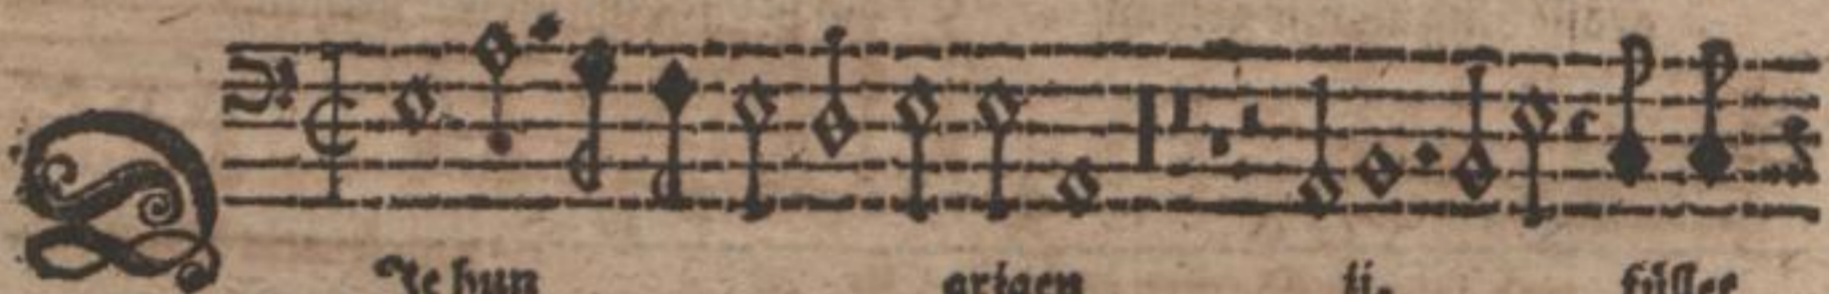 DIe hun grigen ij. füllet